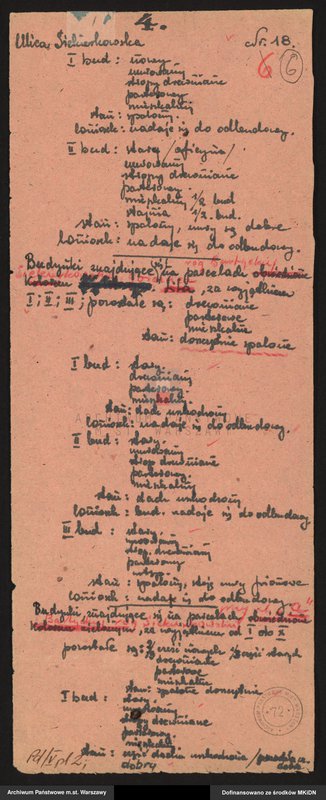 4.
Ulica Siekierkowska Nr. 18.
6 6
I bud: nowy
murowany
stropy drewniane
parterowy
mieszkalny
stan: spalony.
Wniosek: nadaje się do odbudowy.
II bud: stary /oficyna/
murowany
stropy drewniane
parterowy
mieszkalny 1/2 bud
stajnia 1/2 bud.
stan: spalony, mury są dobre
Wniosek: nadaje się do odbudowy.
Budynki znajdujące się na parcelach
kolorem , za wyjątkiem
I; II; III; pozostałe są: drewniane
parterowe
mieszkalne
stan: doszczętnie spalone
I bud: stary
drewniany
parterowy
mieszkalny
stan: dach uszkodzony
Wniosek: nadaje się do odbudowy.
II bud: stary
murowany
strop drewniane
parterowy
mieszkalny
stan: dach uszkodzony
Wniosek: bud. nadaje się do odbudowy
III bud: stary.
murowany
strop. drewniany
parterowy
stan: spalony, stoją mury pionowe
Wniosek: nadaje się do odbudowy
Budynki, znajdujące się na parcelach
kolorem zielonym, za wyjątkiem od I do X
pozostałe są:
drewniane
parterowe
mieszkalne
stan: spalone doszczętnie
I bud: stary
murowany
stropy drewniane
parterowy
mieszkalny
stan: część dachu uszkodzona
dobry
72
Archiwum Państwowe m.st. Warszawy
Dofinansowano ze środków MKiDN